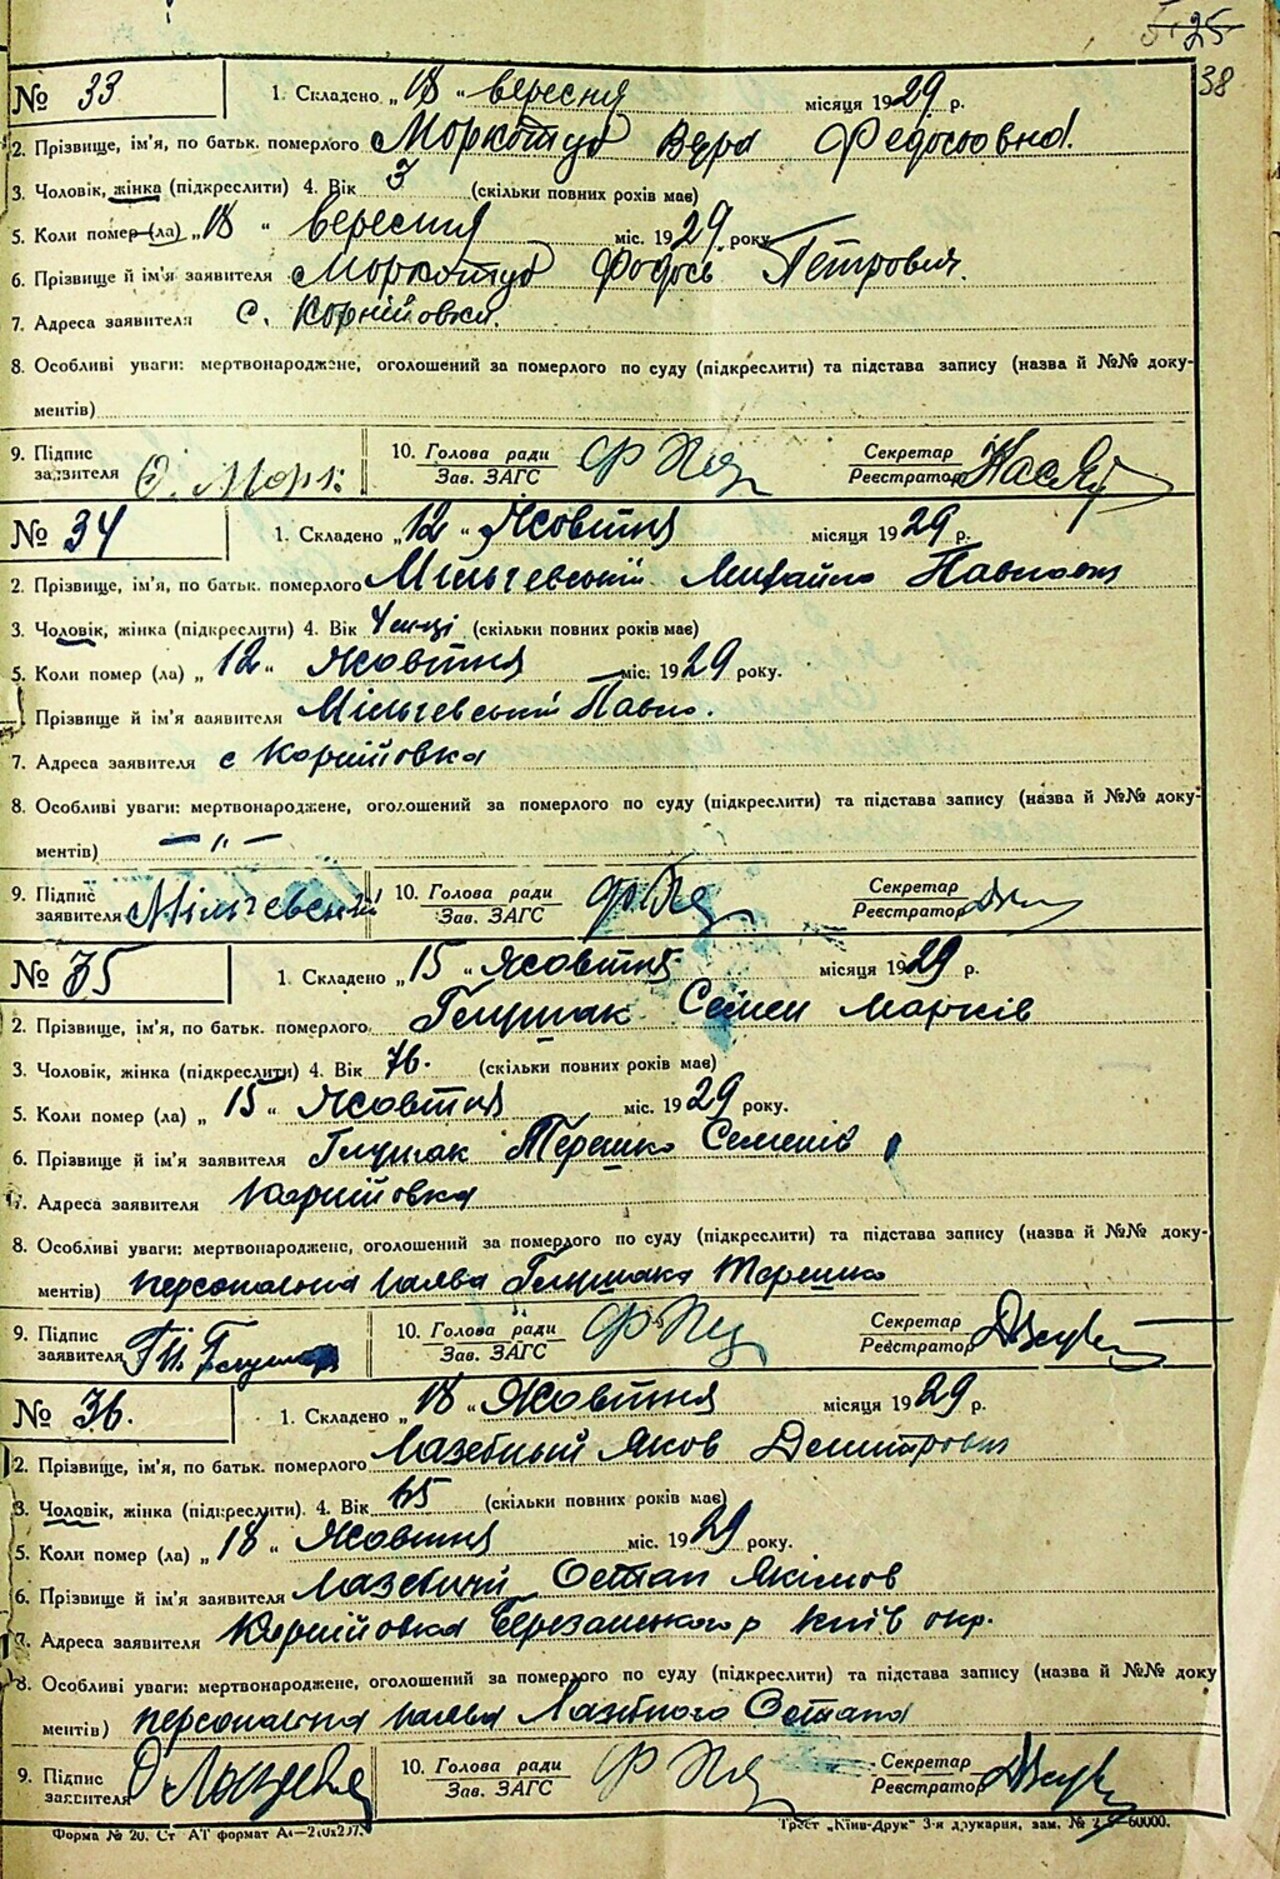 25
38
№ 33 1. Складено „18" вересня місяця 1929 р.
2. Прізвище, ім'я, по батьк. померлого Моркотуб Вера Федосовна.
3. Чоловік, жінка (підкреслити) 4. Вік 3 (скільки повних років має)
5. Коли помер (ла) „18" вересня міс. 1929 року
6. Прізвище й ім'я заявителя Моркотуб Федось Петрович.
7. Адреса заявителя с. Корнійовка.
8. Особливі уваги: мертвонароджене, оголошений за померлого по суду (підкреслити) та підстава запису (назва й №№ доку-
ментів)
9. Підпис заявителя О. Морк: 10. Голова ради Зав. ЗАГС Секретар Реєстратор
№ 34 1. Складено „12" Жовтня місяця 1929 р.
2. Прізвище, ім'я, по батьк. померлого Мільчевській Михайло Павлович
3. Чоловік, жінка (підкреслити) 4. Вік (скільки повних років має)
5. Коли помер (ла) „12" Жовтня міс. 1929 року.
Прізвище й ім'я заявителя Мільчевській Павло.
7. Адреса заявителя с Корнійовка
8. Особливі уваги: мертвонароджене, оголошений за померлого по суду (підкреслити) та підстава запису (назва й №№ доку-
ментів) — „ —
9. Підпис заявителя Мільчевській 10. Голова ради Зав. ЗАГС Секретар Реєстратор
№ 35 1. Складено „15" Жовтня місяця 1929 р.
2. Прізвище, ім'я, по батьк. померлого Глушак Семен Марків
3. Чоловік, жінка (підкреслити) 4. Вік 76. (скільки повних років має)
5. Коли помер (ла) „15" Жовтня міс. 1929 року.
6. Прізвище й ім'я заявителя Глушак Терешко Семенів
7. Адреса заявителя Корнійовка
8. Особливі уваги: мертвонароджене, оголошений за померлого по суду (підкреслити) та підстава запису (назва й №№ доку-
ментів) персональна заява Глушака Терешко
9. Підпис заявителя 10. Голова ради Зав. ЗАГС Секретар Реєстратор
№ 36. 1. Складено „18" Жовтня місяця 1929 р.
2. Прізвище, ім'я, по батьк. померлого Лазебный Яков Демитрович
3. Чоловік, жінка (підкреслити). 4. Вік 65 (скільки повних років має)
5. Коли помер (ла) „18" Жовтня міс. 1929 року.
6. Прізвище й ім'я заявителя Лазебний Остап Якімов
7. Адреса заявителя Корнійовка Березанського р Київ окр.
8. Особливі уваги: мертвонароджене, оголошений за померлого по суду (підкреслити) та підстава запису (назва й №№ доку
ментів) персональна заява Лазебного Остапа
9. Підпис заявителя 10. Голова ради Зав. ЗАГС Секретар Реєстратор
Форма № 20. Ст АТ формат Трест „Київ-Друк" 3-я друкарня, зам. № 60000.